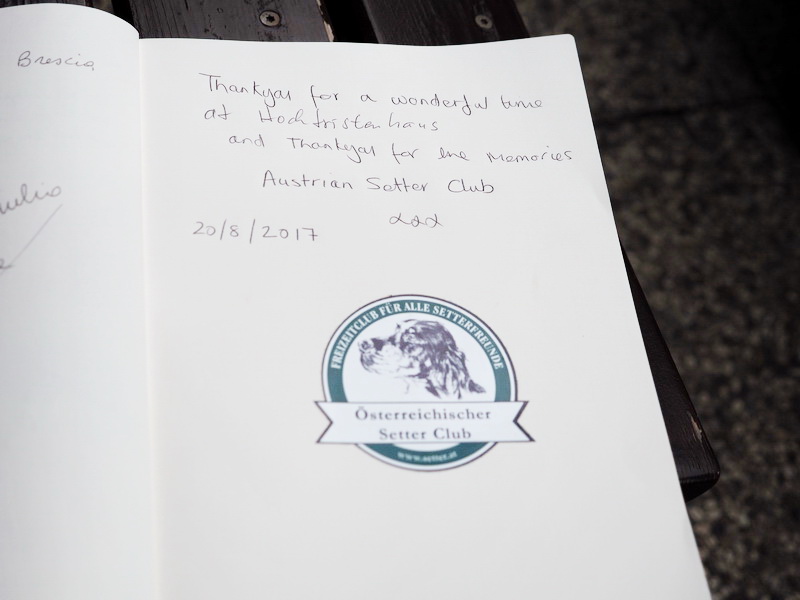 Brescia
Thankyou for a wonderful time
at Hochtristenhaus
and Thankyou for the Memories
Austrian Setter Club
xxx
20/8/2017
FREIZEITCLUB FÜR ALLE SETTERFREUNDE
Österreichischer
Setter Club
www.setter.at